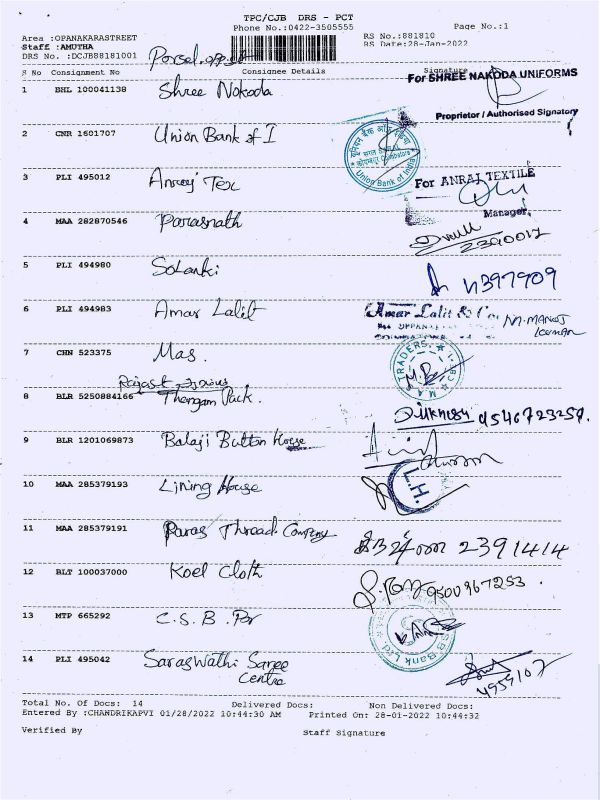 TPC/CJB DRS - PCT
Phone No.:0422-3505555 Page No.:1
Area :OPANAKARASTREET RS No.:881810
Staff :AMUTHA RS Date:28-Jan-2022
DRS No. :DCJB88181001
S No Consignment No Consignee Details Signature
For SHREE NAKODA UNIFORMS
1 BHL 100041138 Shree Nokoda
Proprietor / Authorised Signatory
2 CNR 1601707 Union Bank of I
Union Bank of India
3 PLI 495012 Anraj Tex
For ANRAJ TEXTILE
Manager
4 MAA 282870546 Parasnath
2390017
5 PLI 494980 Solanki
4397909
6 PLI 494983 Amar Lalit
Amar Lalit & Co
7 CHN 523375 Mas.
M A TRADERS
8 BLR 5250884166 Thangam Pack.
9546723257.
9 BLR 1201069873 Balaji Button House
10 MAA 285379193 Lining House
L.H.
11 MAA 285379191 Paras Thread Company
2391414
12 BLT 100037000 Koel Cloth
9500967253.
13 MTP 665292 C.S.B. Por
B Bank Ltd
14 PLI 495042 Saraswathi Saree
Centre
4959107
Total No. Of Docs: 14 Delivered Docs: Non Delivered Docs:
Entered By :CHANDRIKAPVI 01/28/2022 10:44:30 AM Printed On: 28-01-2022 10:44:32
Verified By Staff Signature